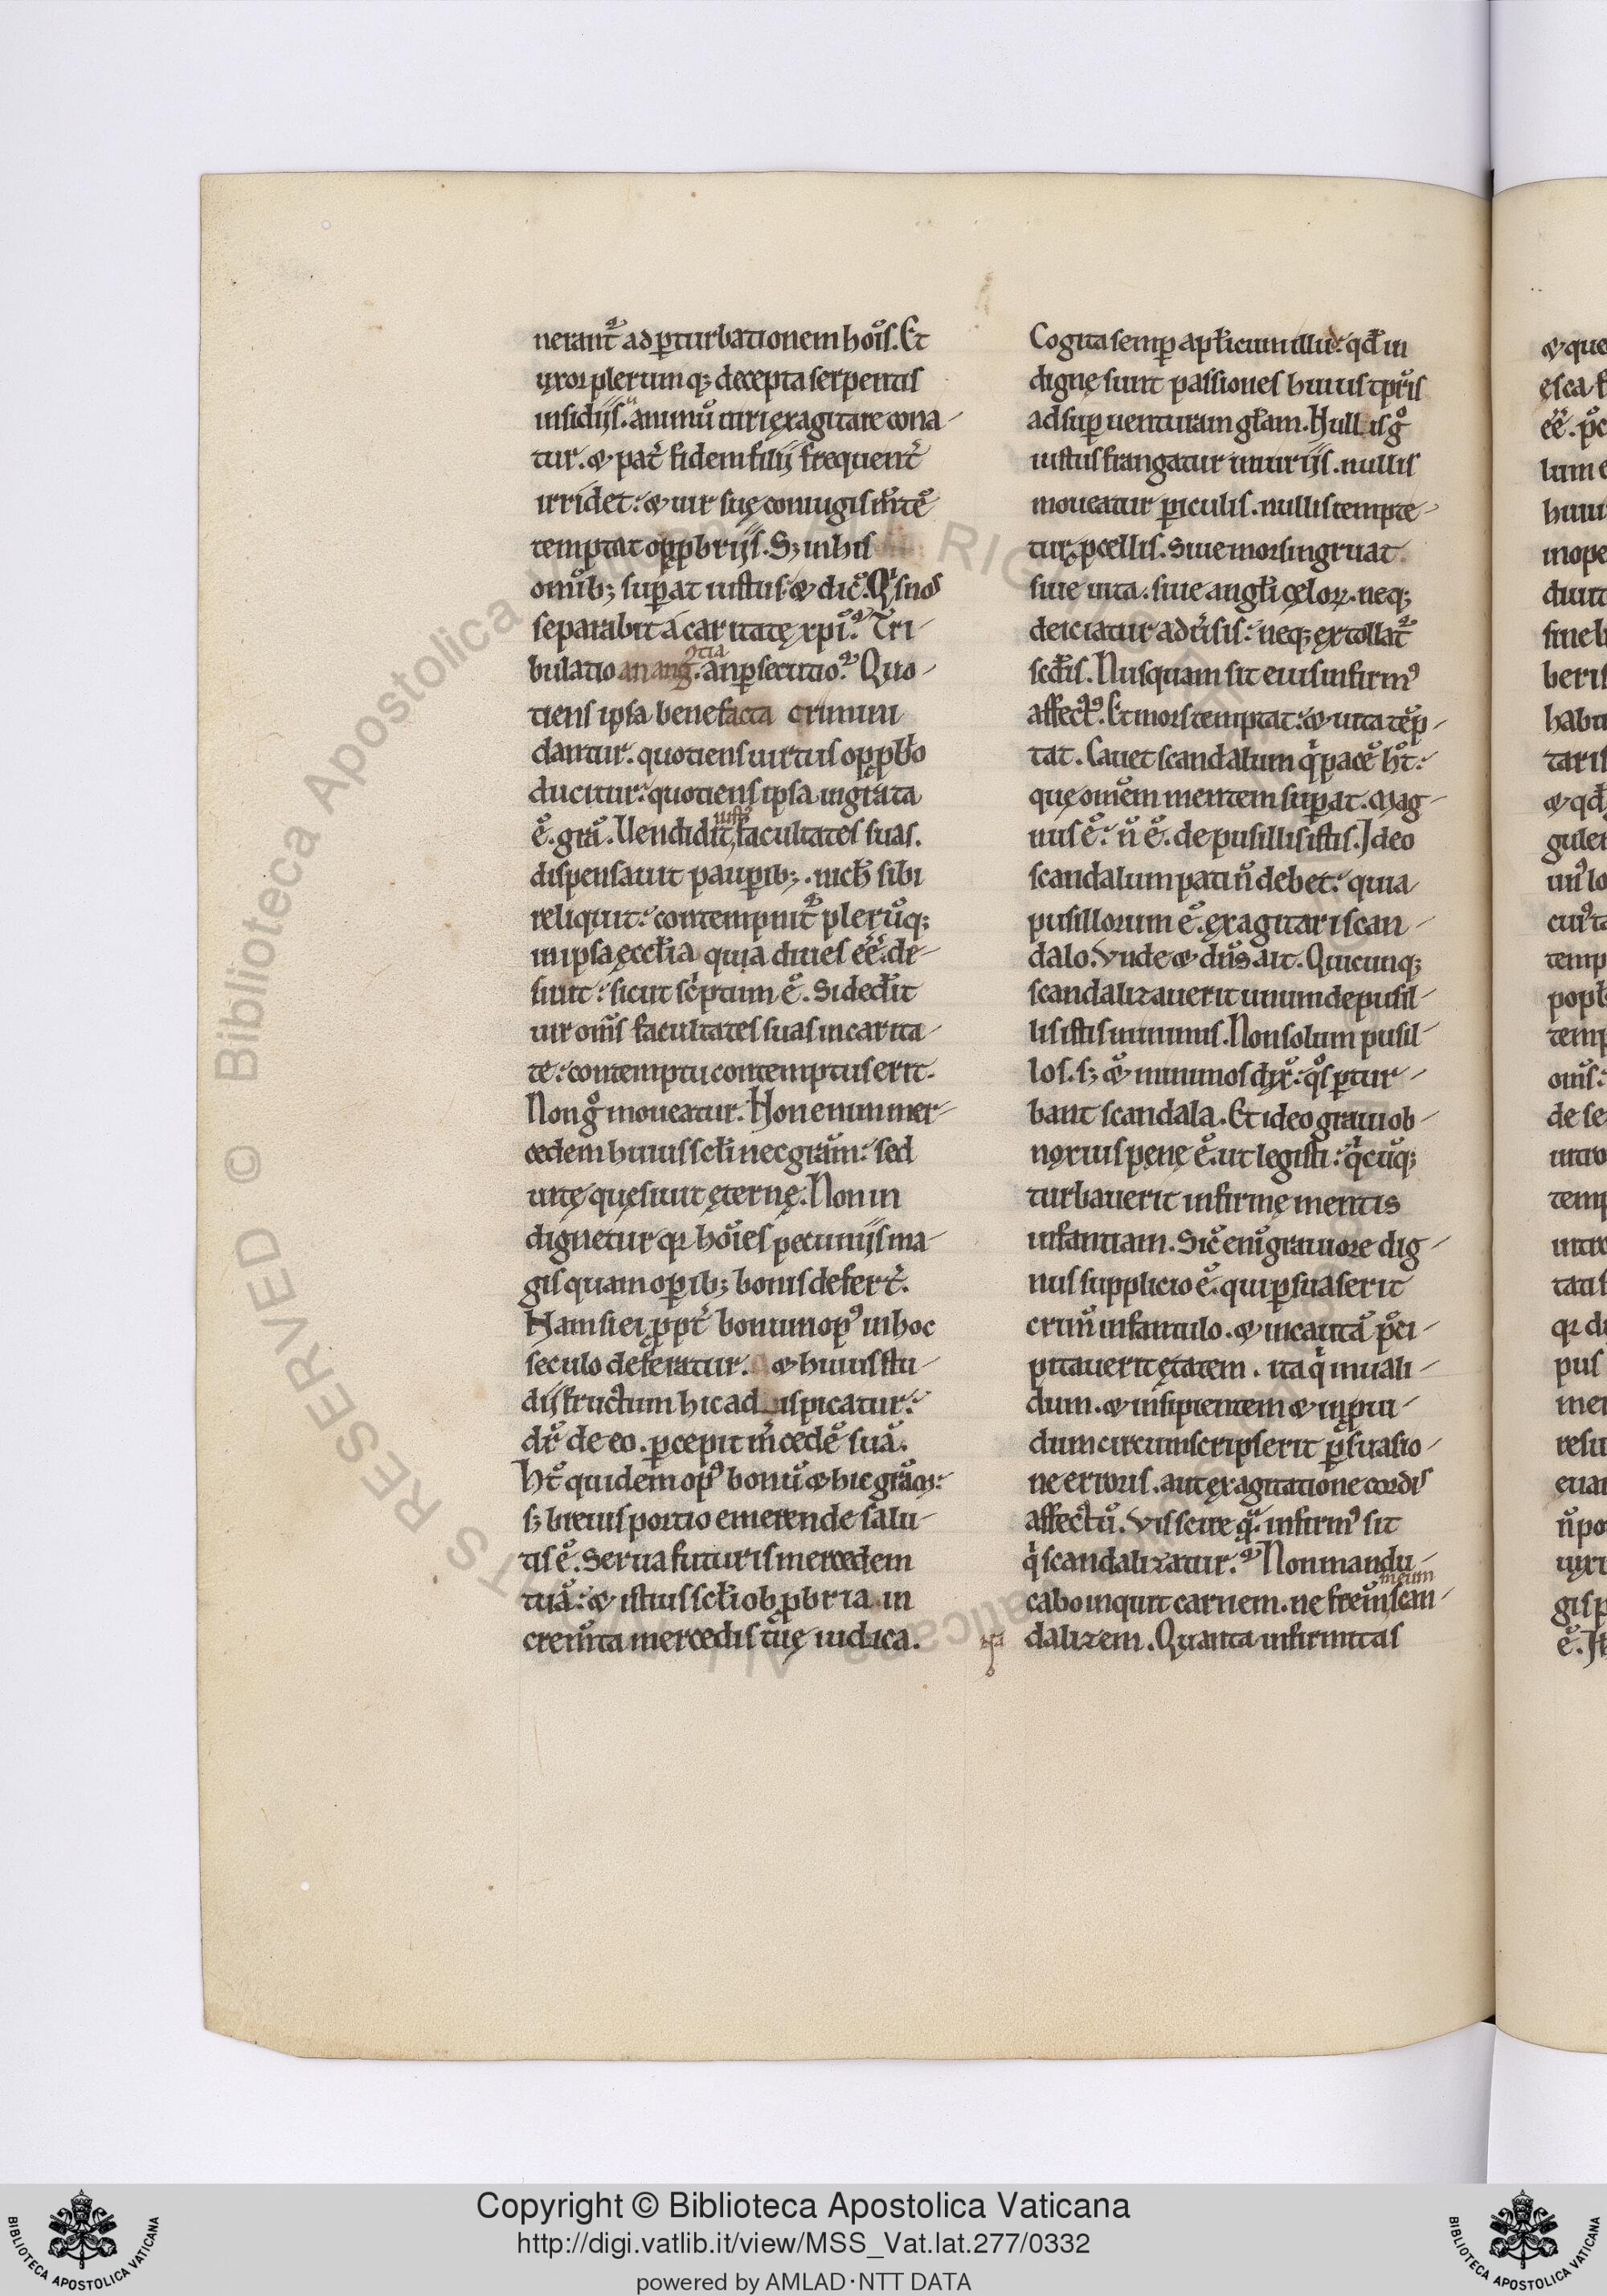 nerant᷑ ad ꝑturbationem hoı̃s. Et
uxor plerumq; decepta serpentis
insidijs. animũ uiri exagitare cona-
tur. & pat̃ fidem filij frequent̃
irridet. & uir suę coniugis m̃tẽ
temptat opꝓbrijs. S; in his
om̃ib; suꝑat iustus. & dic̃. Qͥs nos
separabit á caritate xp̃i? Tri-
bulatio an angꝯtia. an ꝑsecutio? Quo-
tiens ipsa benefacta crimini
dantur. quotiens uirtus opꝓb̃o
ducitur. quotiens ipsa ingrata
ẽ. gr̃a. Uendidit iustꝰ facultates suas.
dispensauit pauꝑib;. nich̃ sibi
reliquit. contempnit᷑ plerũq;
in ipsa ęccl̃ia quia diues eẽ. de-
siuit. sicut scͥptum ẽ. Si ded̃it
uir om̃s facultates suas in carita-
te. contemptu contemptus erit.
Non g̊ moueatur. Non enim mer-
cedem huius scl̃i nec gr̃am. sed
uitę quesiuit ęternę. Non in
dignetur qꝛ hoı̃es pecunijs ma-
gis quam oꝑib; bonis defert̃.
Nam si ei ꝓpt̃ bonum opꝰ in hoc
seculo deferatur. & huius stu-
dij fructum hic ad ispicatur.
dr̃ de eo. ꝑcepit m̃cedẽ suã.
Ht̃ quidem opꝰ bonũ & hic gr̃am.
s; breuis portio emerende salu-
tis ẽ. Serua futuris mercedem
tuã. & istius scl̃i obꝓbria in
crem̃ta mercedis tuę iudica.
Cogita semꝑ apl̃icum illud. qd̃ in
dignę sunt passiones huius tꝑis
ad suꝑuenturam gl̃am. Nullis g̊
iustus frangatur iniurijs. nullis
moueatur ꝑiculis. nullis tempte-
tur ꝓcellis. Siue mors ingruat
siue uita. siue angl̃i cęloꝝ. neq;
deiciatur adũsis. neq; extollat᷑
scd̃is. Nusquam sit eius infirmꝰ
affectꝰ. Et mors temptat. & uita tẽp-
tat. Cauet scandalum qͥ pacẽ ht̃.
quę om̃em mentem suꝑat. Mag-
nus ẽ. ñ ẽ. de pusillis istis. Ideo
scandalum pati ñ debet. quia
pusillorum ẽ. exagitari scan-
dalo. Vnde & dñs ait. Quicunq;
scandalizauerit unum de pusil-
lis istis minimis. Non solum pusil-
los. s; & minimos dix̃. qͦs ꝑtur-
bant scandala. Et ideo graui ob-
noxius penę ẽ. ut legisti. qͥcũq;
turbauerit infirmę mentis
infantiam. Sic̃ enı̃ grauiore dig-
nus supplicio ẽ. qui ꝑsuaserit
crim̃ infantulo. & incautã p̃ci-
pitauerit ętatem. ita qͥ inuali-
dum. & insipientem & inꝓui-
dum circumscripserit ꝑsuasio-
ne erroris. aut exagitatione cordis
affectũ. Vis scire qͣ. infirmꝰ sit
qͥ scandalizatur? Non mandu-
cabo inquit carnem. ne frem̃ meum scan-
dalizem. Quanta infirmitas
Copyright © Biblioteca Apostolica Vaticana
http://digi.vatlib.it/view/MSS_Vat.lat.277/0332
powered by AMLAD·NTT DATA